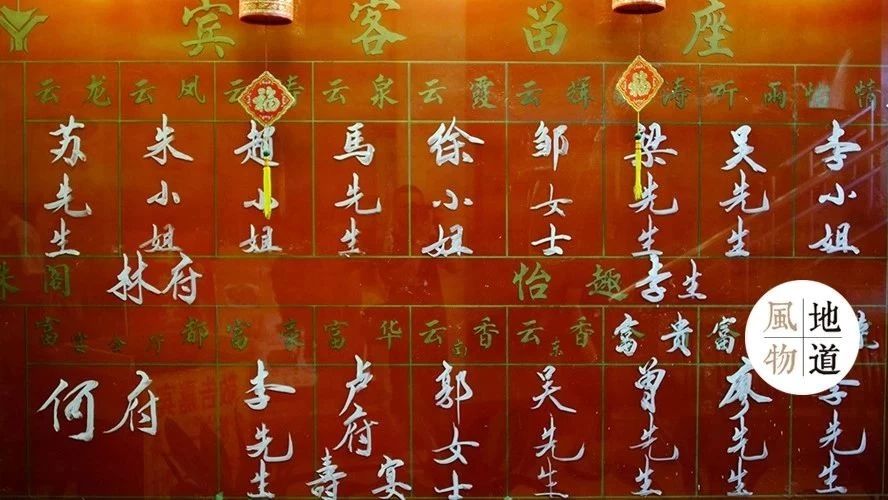 宾客留座
云龙 云凤 云 云泉 云霞 云辉 涛 听雨 怡情
苏先生 朱小姐 趙小姐 馬先生 徐小姐 邹女士 梁先生 吴先生 李小姐
阁 林府 怡趣 李生
富 都 富豪 富华 云香南 云香东 富贵 富
何府 李先生 卢府寿宴 郭女士 吴先生 曾先生 廖先生 李先生
地道
風物